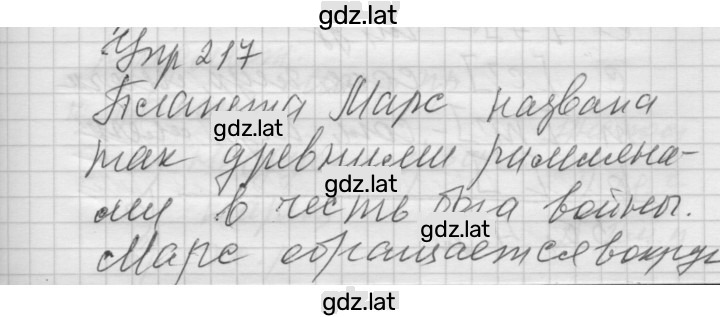 gdz.lat
Упр 217
Планета Марс названа
gdz.lat
так древними римляна-
gdz.lat
ми в честь бога войны.
gdz.lat
Марс обращается вокруг
gdz.lat